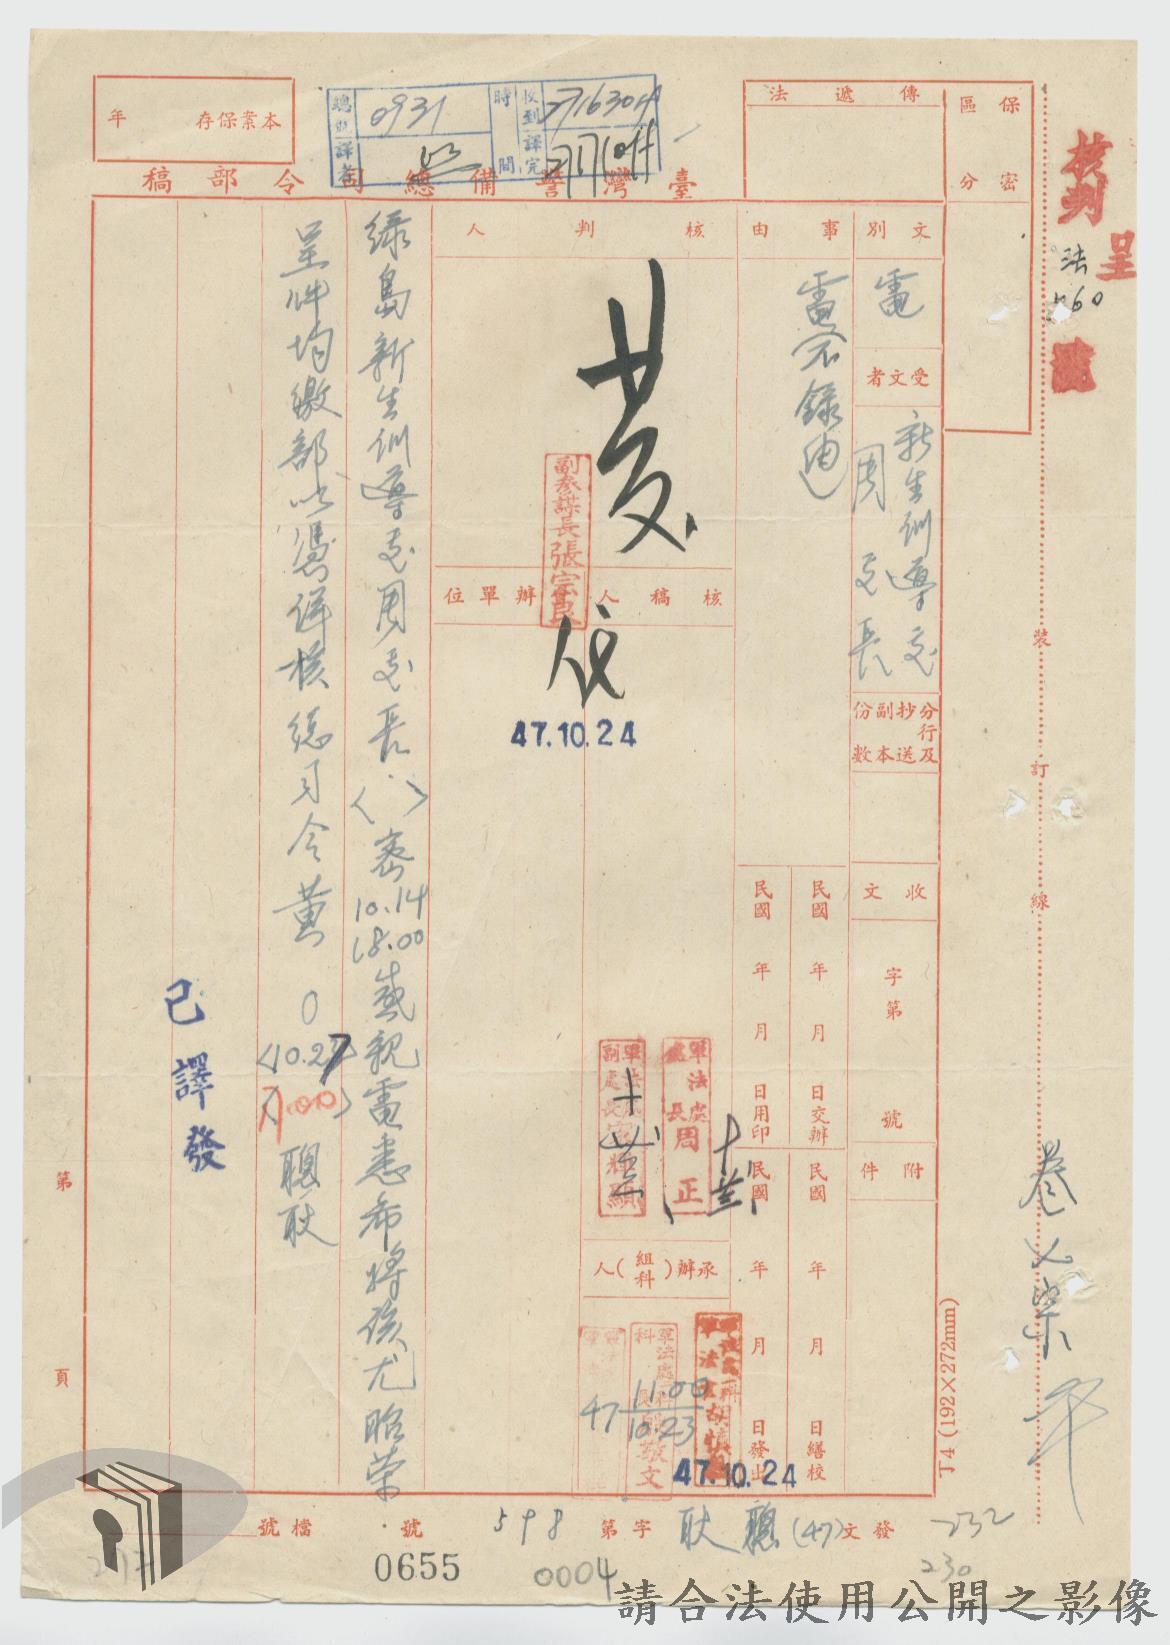 保密
區分
傳遞法
本案保存 年
總號 0931
譯者
時間
收到
譯完
臺灣警備總司令部稿
核判
呈
法
號
文別
電
受文者
新生訓導處
周處長
事由
電不錄由
核判人
黃
副參謀長張宗良
代
核稿人
辦單位
47.10.24
分行及抄送副本份數
收文
字第
號
附件
民國 年 月 日交辦
民國 年 月 日用印
民國 年 月 日繕校
民國 年 月 日發出
軍法處處長周正
承辦(組科)人
47
11.00
10.23
47.10.24
綠島新生訓導處周處長〈 〉密10.14
18.00感親電悉希將復尤昭榮
呈件均繳部以憑併核總司令黃
〈10.27
聰耿
已譯發
裝
訂
線
第
頁
J4 (192×272mm)
發文(47)聰耿字第598號
檔號
232
230
0655
0004
請合法使用公開之影像